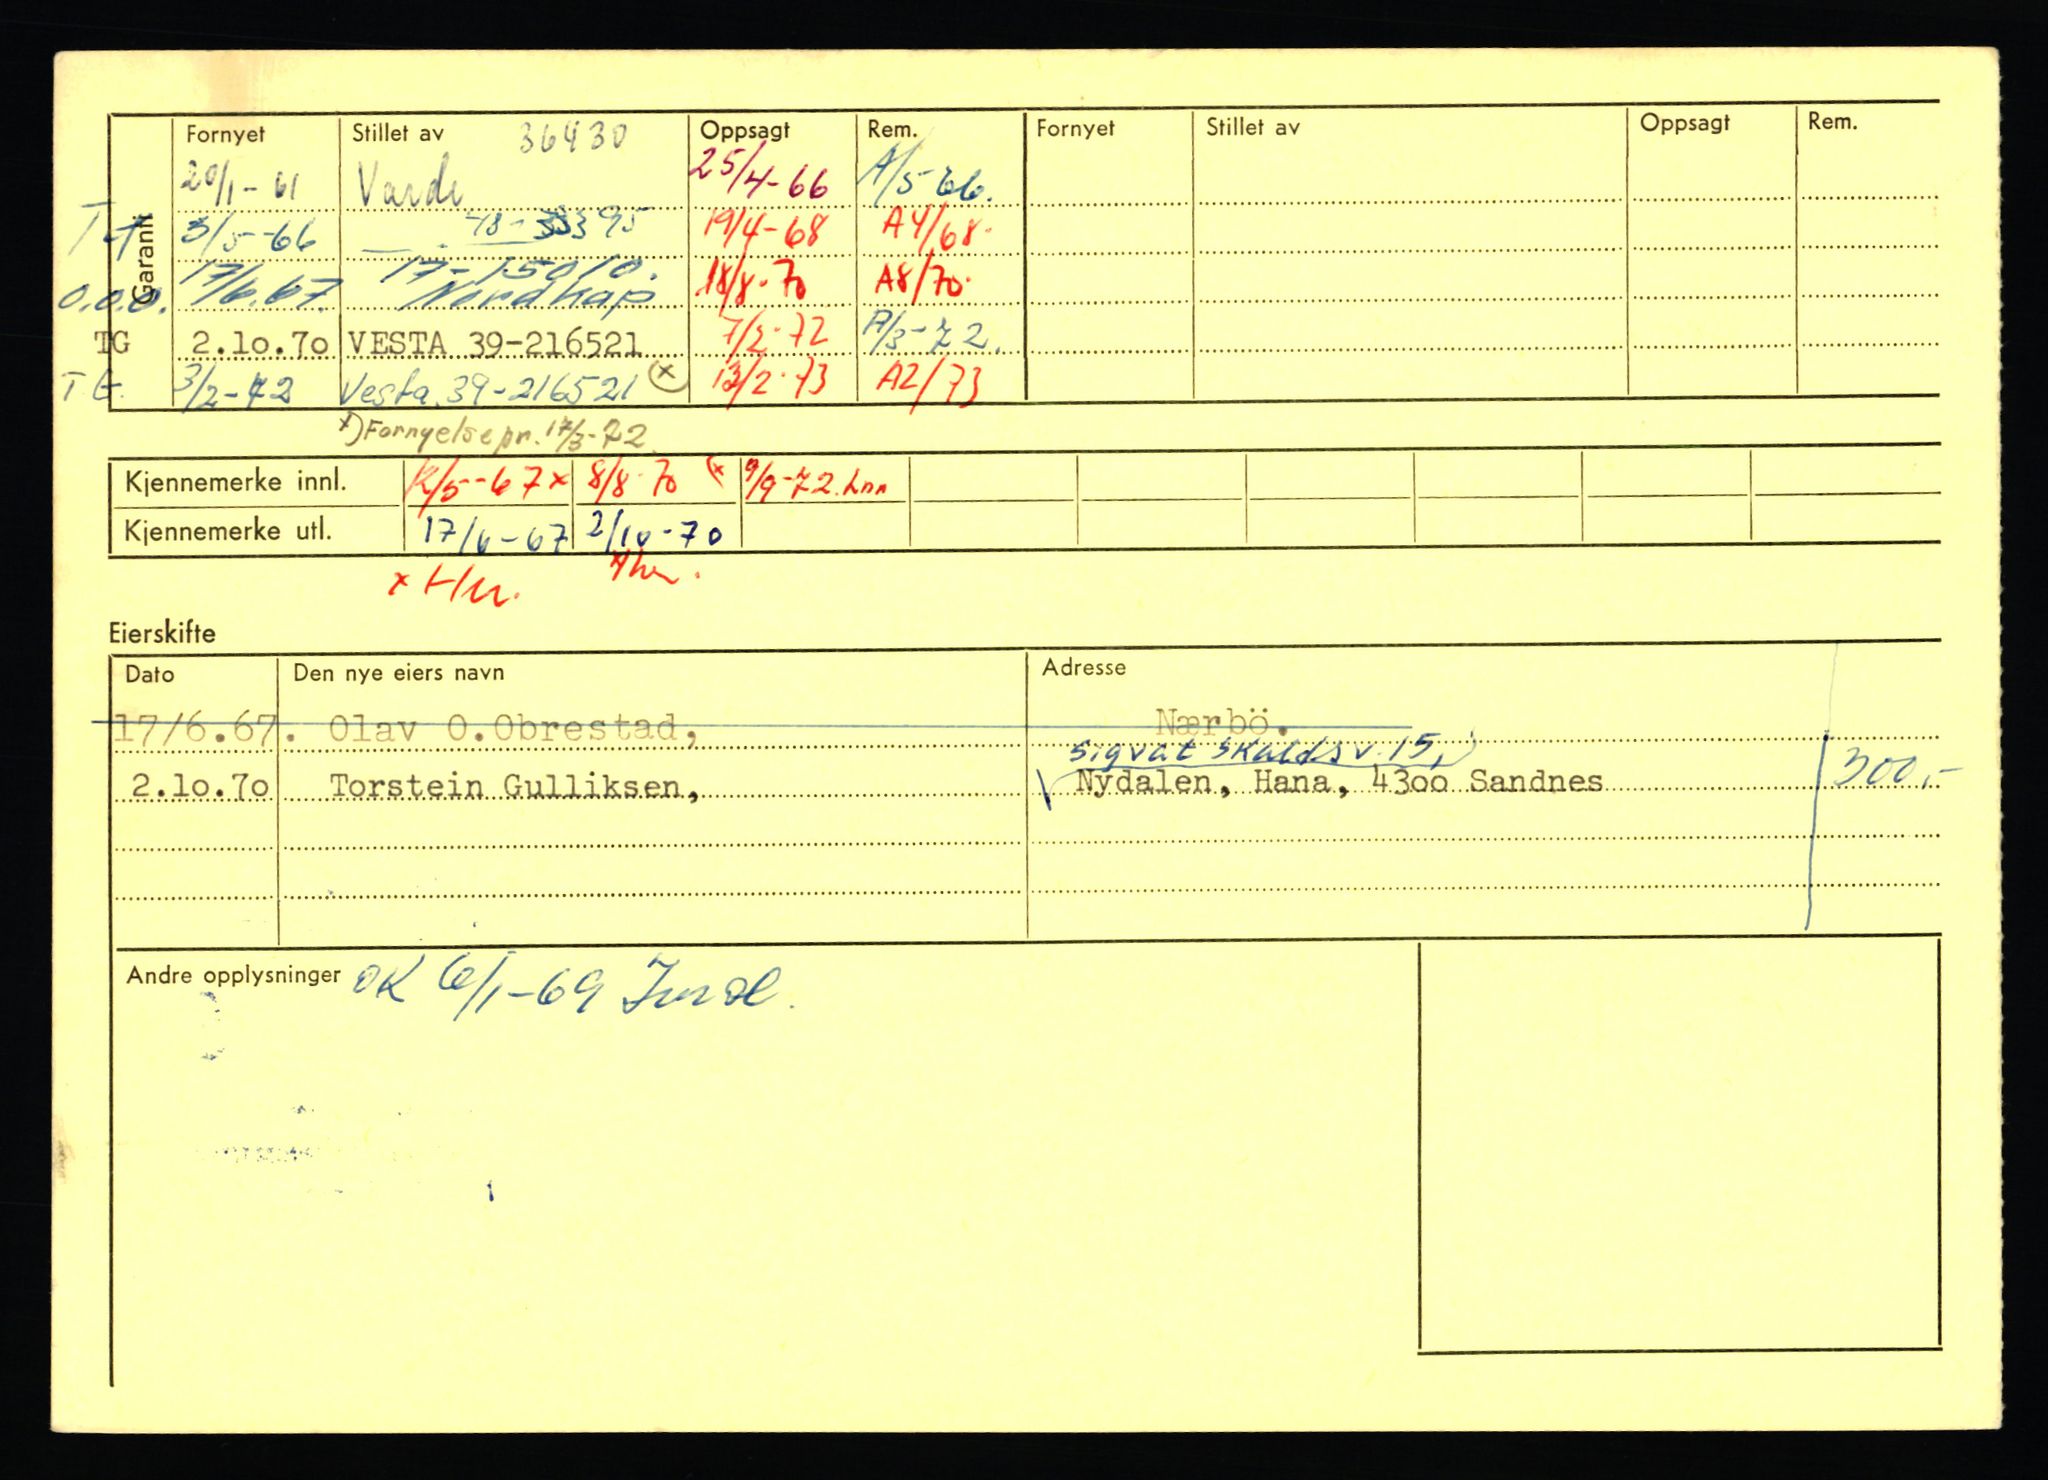 Fornyet Stillet av 36430 Oppsagt Rem. Fornyet Stillet av Oppsagt Rem.
Garanti
20/1-61 25/4-66 A/5-66.
3/5-66 48-33395 19/4-68 A4/68.
O.O.O. 17/6.67. 17-15010. Nordkap 18/8-70 A8/70.
TG 2.10.70 VESTA 39-216521 7/2-72 A/3-72.
TG. 3/2-72 Vesta. 39-216521 (x) 13/2-73 A2/73
x) Fornyelse pr. 17/3-72
Kjennemerke innl. K/5-67 x 8/8-70 (x 9/9-72. Lnn
Kjennemerke utl. 17/6-67 2/10-70
Eierskifte
Dato Den nye eiers navn Adresse
17/6.67. Olav O.Obrestad, Nærbö.
Sigvat Skaldsv. 15,
2.10.70 Torstein Gulliksen, Nydalen, Hana, 4300 Sandnes 300,-
Andre opplysninger OK 6/1-69